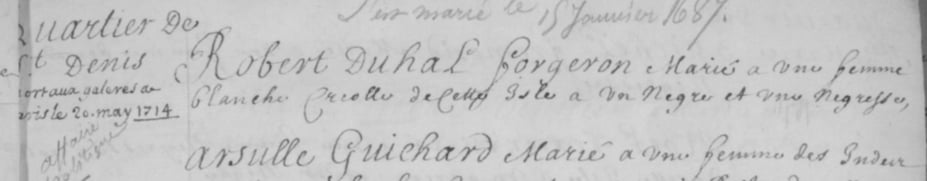 S'est marié le 15 Janvier 1687.
Quartier De
St Denis
mort aux galeres a
paris le 20. may 1714
affaire
Robert Duhal forgeron Marié a vne femme
blanche Creolle de Cette Isle a vn Negre et vne Negresse,
arsulle Guichard Marié a vne femme des Indes